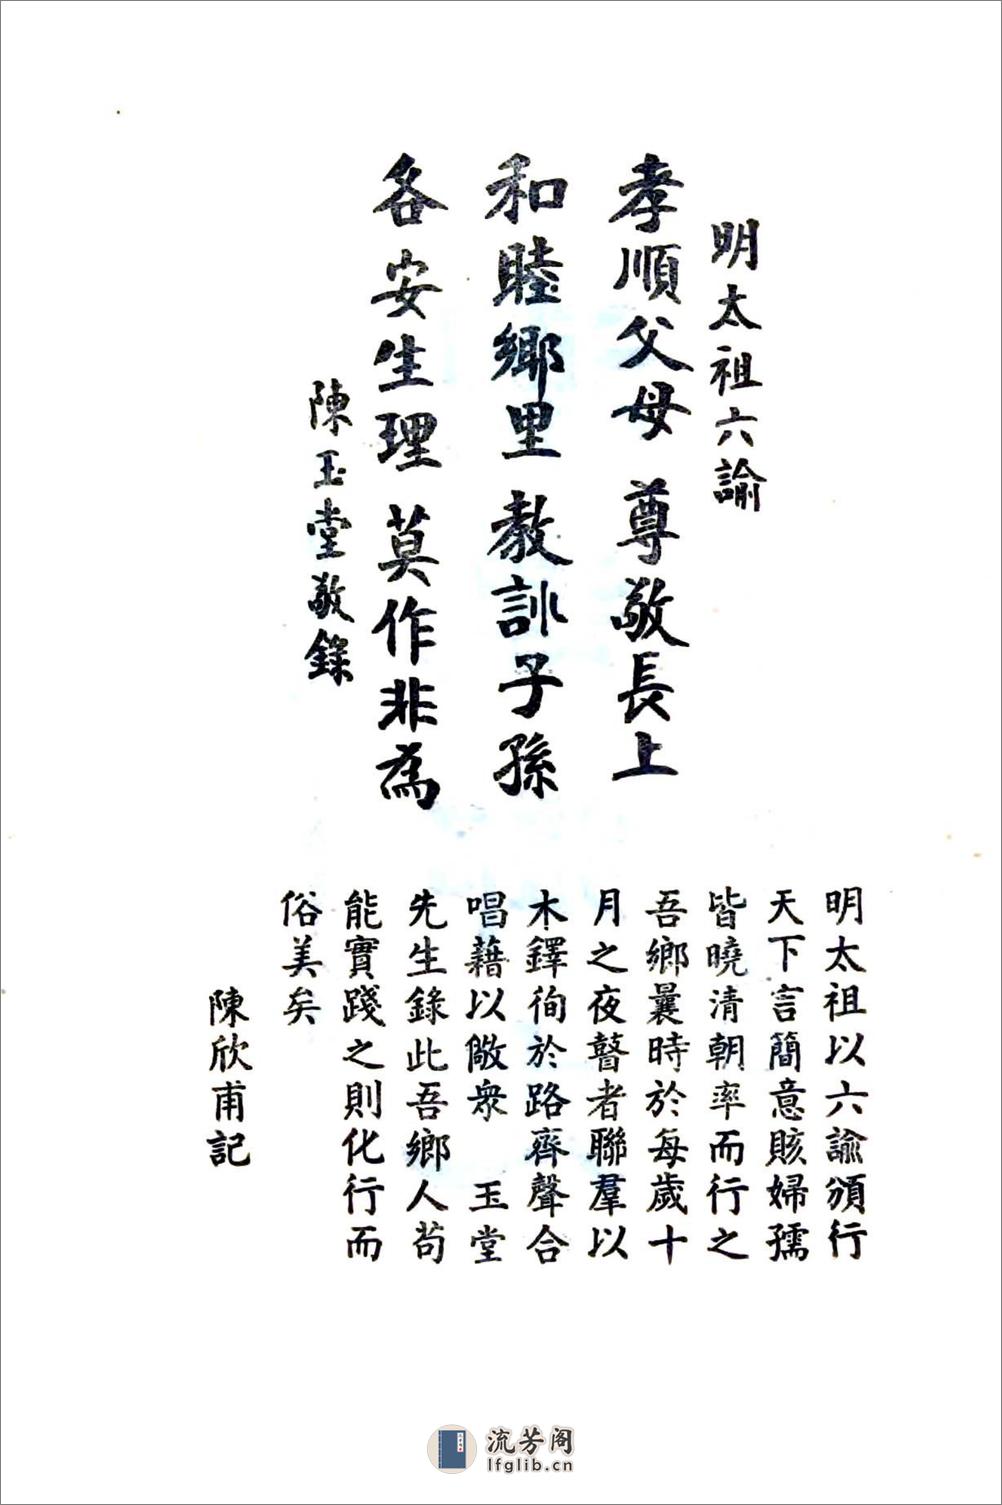 明太祖六諭
孝順父母 尊敬長上
和睦鄉里 教訓子孫
各安生理 莫作非為
陳玉堂敬錄
明太祖以六諭頒行
天下言簡意賅婦孺
皆曉清朝率而行之
吾鄉曩時於每歲十
月之夜瞽者聯羣以
木鐸徇於路齊聲合
唱藉以儆眾 玉堂
先生錄此吾鄉人苟
能實踐之則化行而
俗美矣
陳欣甫記
流芳阁
lfglib.cn